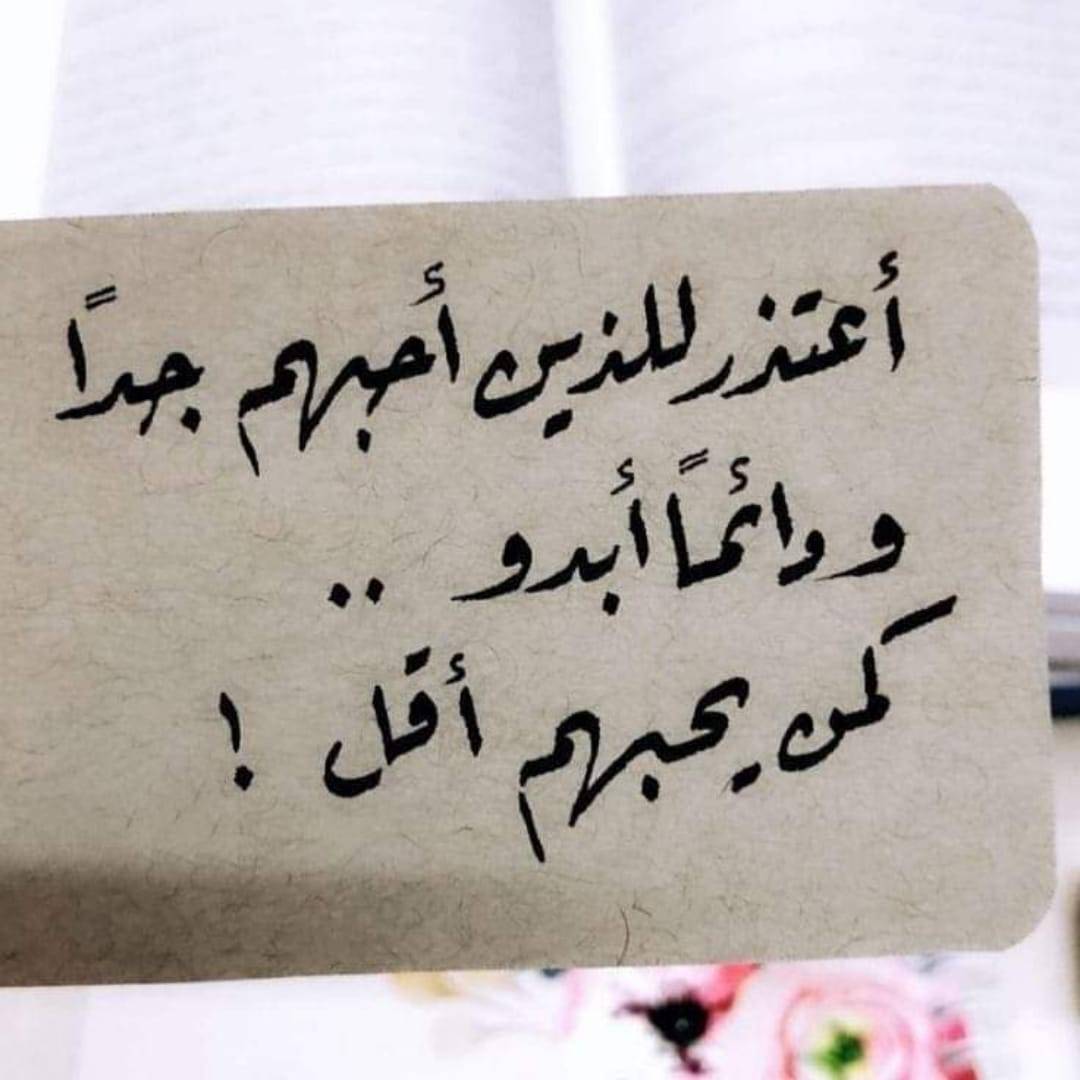 أعتذر للذين أحبهم جداً
و دائماً أبدو ..
كمن يحبهم أقل !